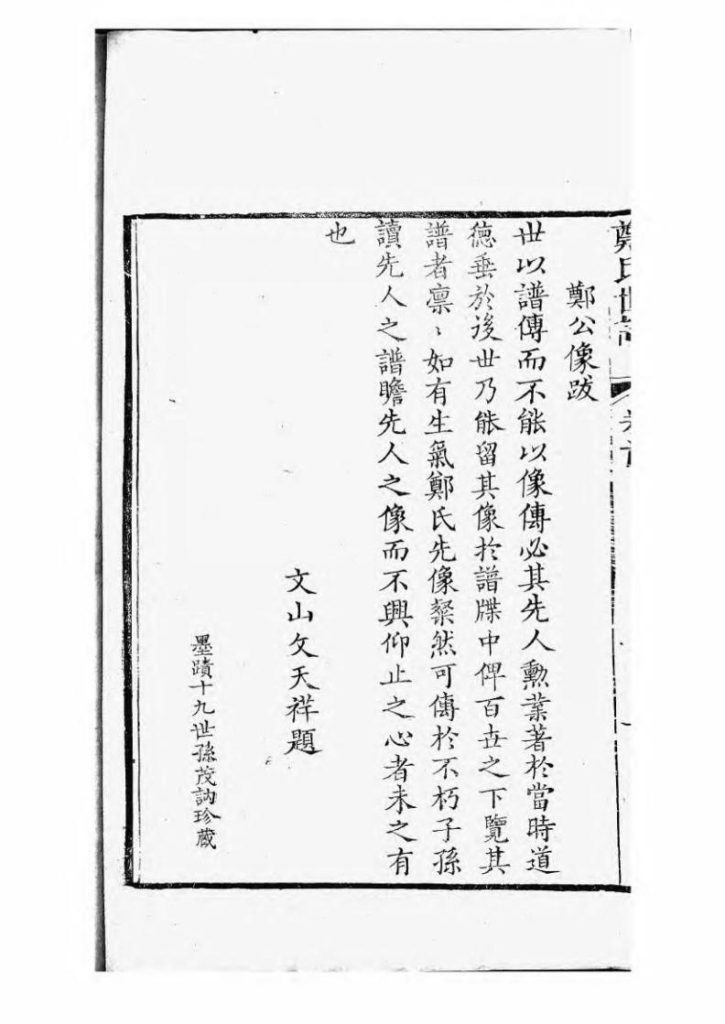 鄭氏世譜
鄭公像跋
世以譜傳而不能以像傳必其先人勳業著於當時道
德垂於後世乃能留其像於譜牒中俾百世之下覽其
譜者凛〻如有生氣鄭氏先像粲然可傳於不朽子孫
讀先人之譜瞻先人之像而不興仰止之心者未之有
也
文山文天祥題
墨蹟十九世孫茂訥珍藏